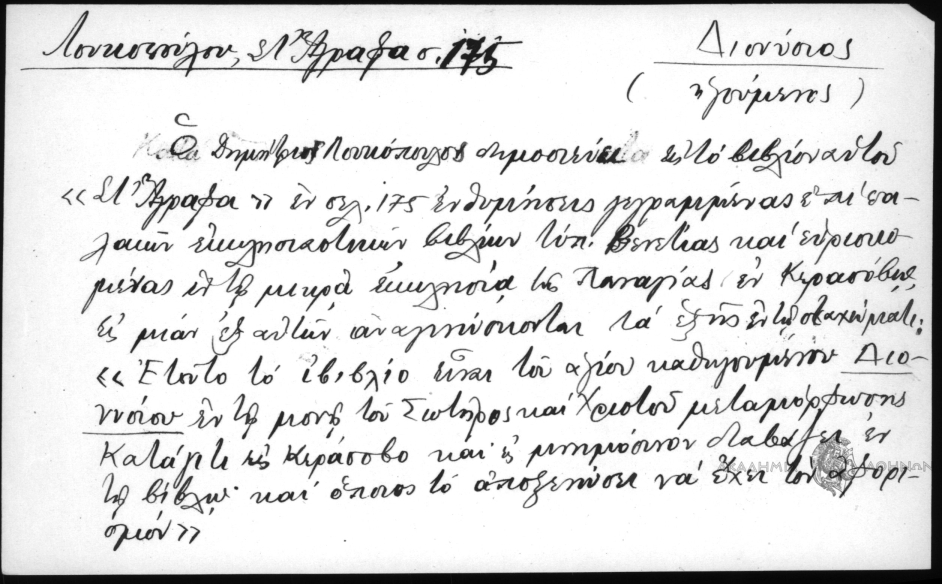 Λουκοπούλου, Στ' Ἄγραφα σ. 175
Διονύσιος
(ἡγούμενος)
Ὁ Δημήτριος Λουκόπουλος δημοσιεύει εἰς τὸ βιβλίον αὐτοῦ
«Στ' Ἄγραφα» ἐν σελ. 175 ἐνθυμήσεις γεγραμμένας ἐπὶ πα-
λαιῶν ἐκκλησιαστικῶν βιβλίων τύπ. Βενετίας καὶ εὑρισκο-
μένας ἐν τῇ μικρᾷ ἐκκλησίᾳ τῆς Παναγίας ἐν Κερασόβῳ,
εἰς μίαν ἐξ αὐτῶν ἀναγινώσκονται τὰ ἑξῆς ἐν τῷ σταχώματι:
«Ἐτοῦτο τὸ ἐβιβλίο εἶναι τοῦ ἁγίου καθηγουμένου Διο-
νυσίου ἐν τῇ μονῇ τοῦ Σωτῆρος καὶ Χριστοῦ μεταμόρφωσης
Κατάγιτι εἰς Κεράσοβο καὶ εἰς μνημόσινον διαβάζει ἐν
τῇ βίβλῳ καὶ ὅποιος τὸ ἀποξενώσει νὰ ἔχει τὸν ἀφορι-
σμόν»
ΑΚΑΔΗΜΙΑ ΑΘΗΝΩΝ